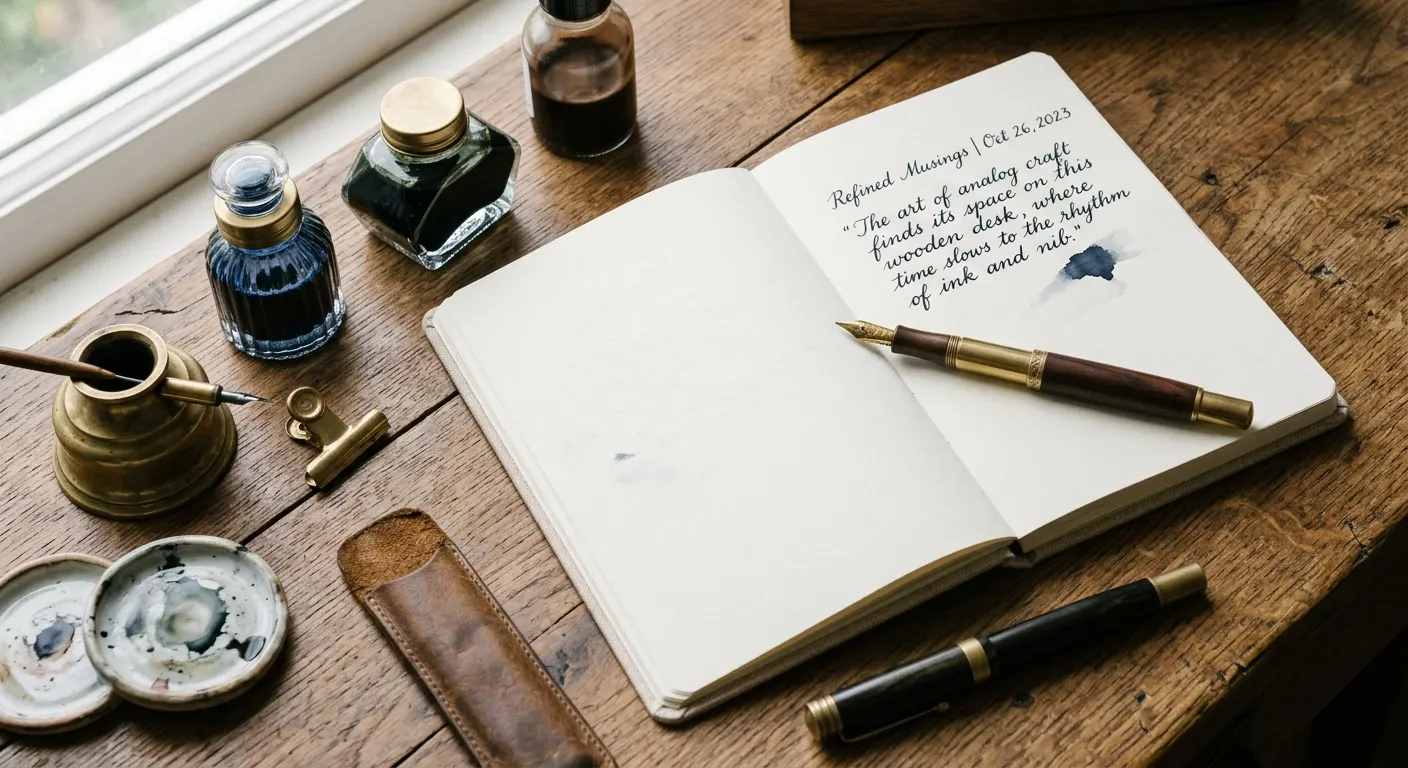 Refined Musings | Oct 26, 2023
"The art of analog craft
finds its space on this
wooden desk, where
time slows to the rhythm
of ink and nib."